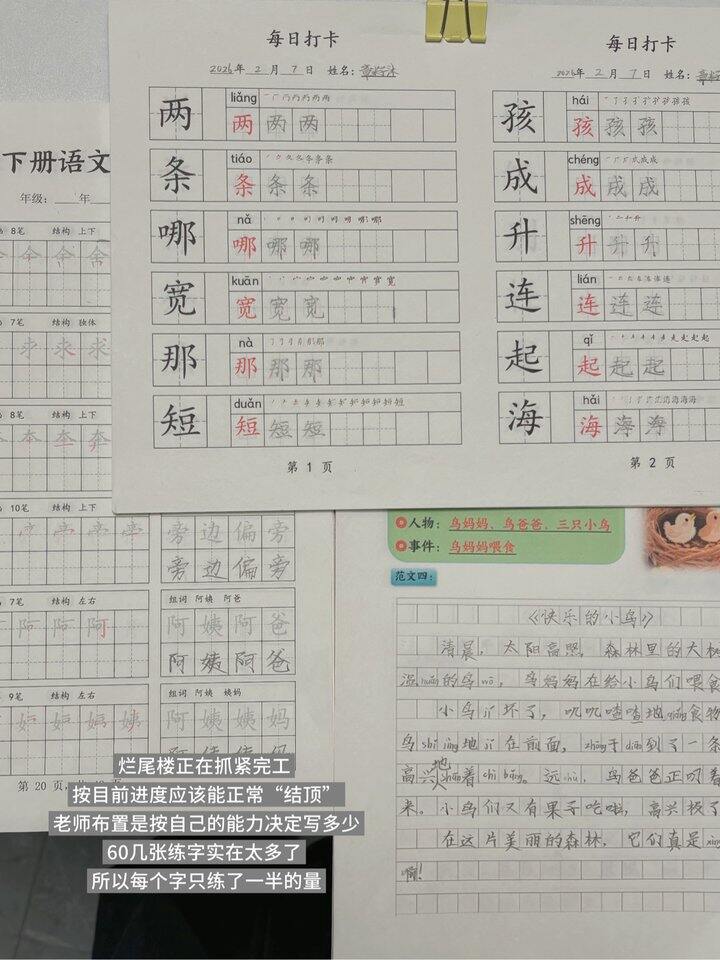 每日打卡
2026年 2 月 7 日 姓名:
两 liǎng 两 两 两
条 tiáo 条 条 条
哪 nǎ 哪 哪 哪
宽 kuān 宽 宽 宽
那 nà 那 那 那
短 duǎn 短 短 短
第 1 页
每日打卡
2026年 2 月 7 日 姓名:
孩 hái 孩 孩 孩
成 chéng 成 成 成
升 shēng 升 升 升
连 lián 连 连 连
起 qǐ 起 起 起
海 hǎi 海 海 海
第 2 页
下册语文
年级: 年
8笔 结构 上下
7笔 结构 独体
求 求
8笔 结构 上下
10笔 结构 上下
旁 边 偏 旁
旁 边 偏 旁
7笔 结构 左右
阿 阿 阿
组词 阿姨 阿爸
阿 姨 阿 爸
阿 姨 阿 爸
9笔 结构 左右
姨
组词 阿姨 姨妈
阿 姨 姨 妈
第 20 页
人物: 鸟妈妈、鸟爸爸、三只小鸟
事件: 鸟妈妈喂食
范文四:
《快乐的小鸟》
清晨，太阳高照，森林里的大树
的鸟wō，鸟妈妈在给小鸟们喂食
小鸟jī坏了，叽叽喳喳地 食物
鸟 地 在前面，zhōng于 到了一条
高兴地 着chì bǎng。远 ，鸟爸爸正叼着
米。小鸟们又有果子吃啦，高兴极了
在这片美丽的森林，它们真是
啊!
烂尾楼正在抓紧完工
按目前进度应该能正常“结顶”
老师布置是按自己的能力决定写多少
60几张练字实在太多了
所以每个字只练了一半的量